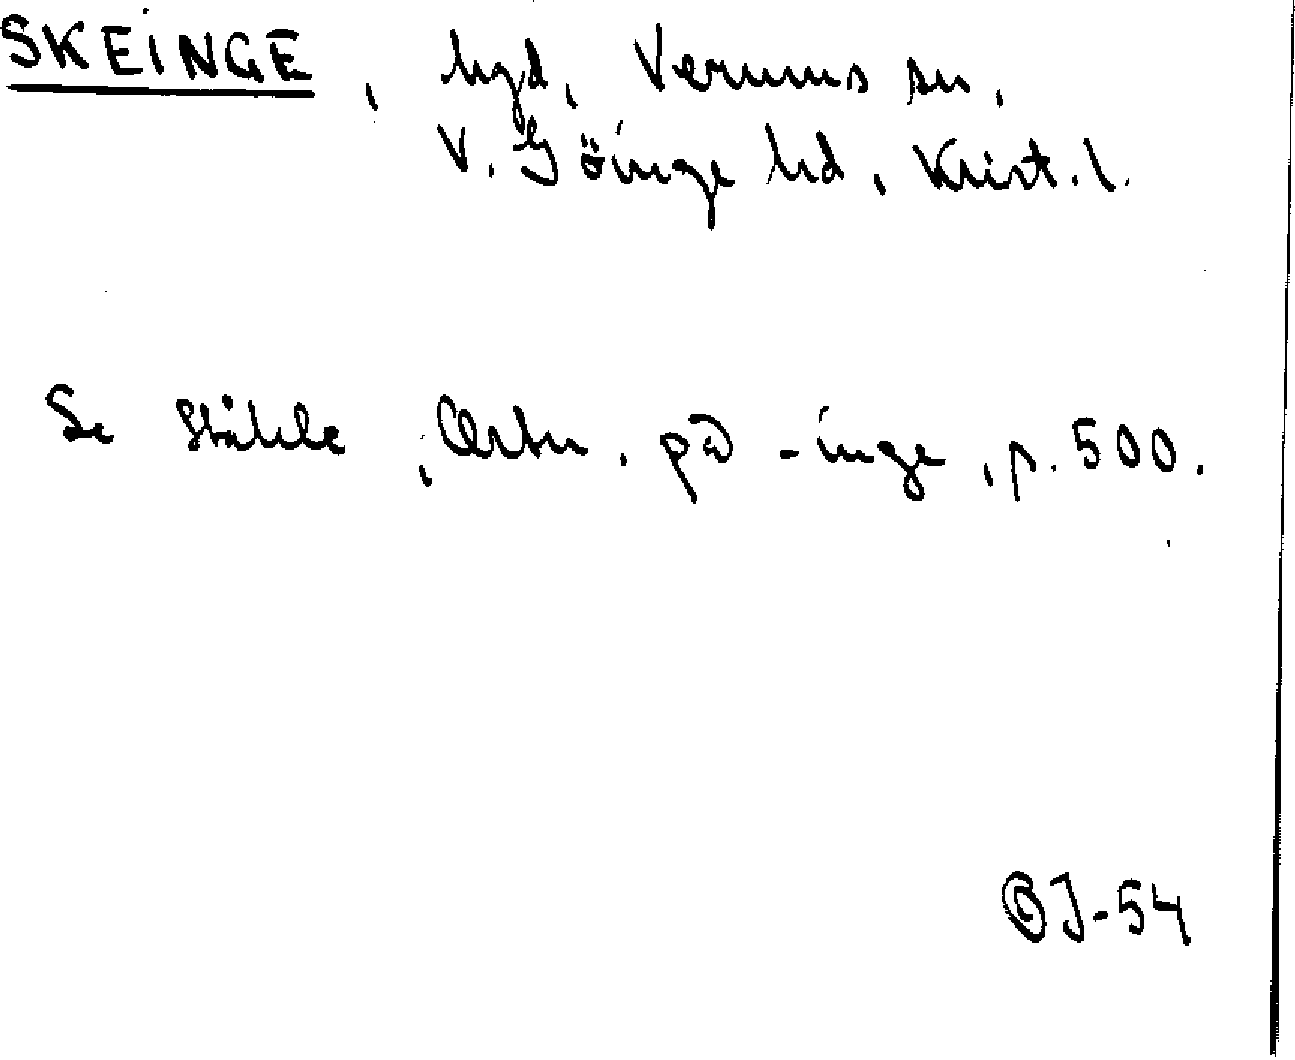 SKEINGE, hgd, Verums sn,
V. Göinge hd, Krist. l.
Se Ståhle, Ortn. på -inge, p. 500.
OJ-54